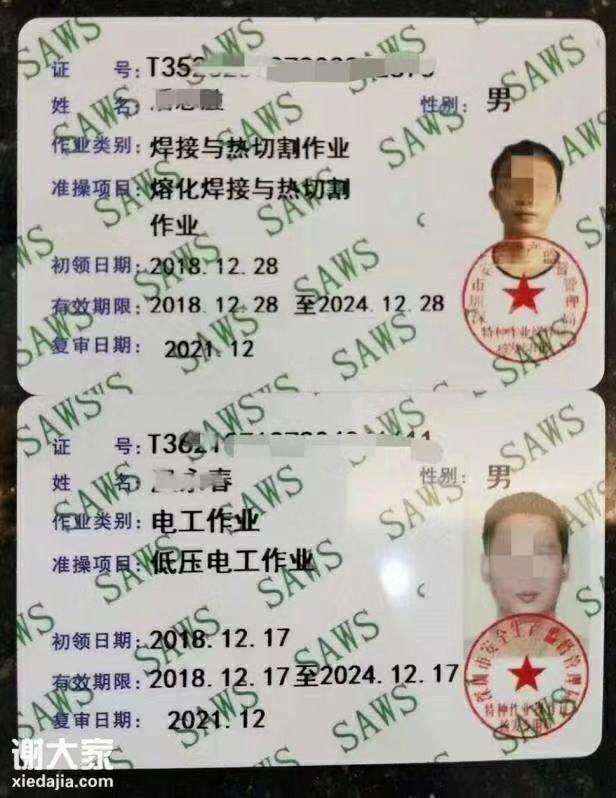 证 号：T35
姓 名： 性别：男
作业类别：焊接与热切割作业
准操项目：熔化焊接与热切割
作业
初领日期：2018.12.28
有效期限：2018.12.28 至2024.12.28
复审日期：2021.12
SAWS
证 号：T362
姓 名：永春 性别：男
作业类别：电工作业
准操项目：低压电工作业
初领日期：2018.12.17
有效期限：2018.12.17至2024.12.17
复审日期：2021.12
深圳市安全生产监督管理局
特种作业
SAWS
谢大家
xiedajia.com